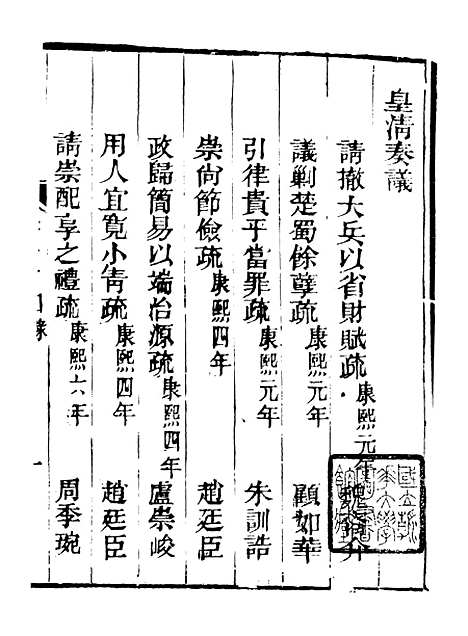 皇清奏議
請撤大兵以省財賦疏 康熙元年 魏裔介
議剿楚蜀餘孽疏 康熙元年 顧如華
引律貴乎當罪疏 康熙元年 朱訓誥
崇尚節儉疏 康熙四年 趙廷臣
政歸簡易以端治源疏 康熙四年 盧崇峻
用人宜寬小眚疏 康熙四年 趙廷臣
請崇配享之禮疏 康熙六年 周季琬
目錄 一